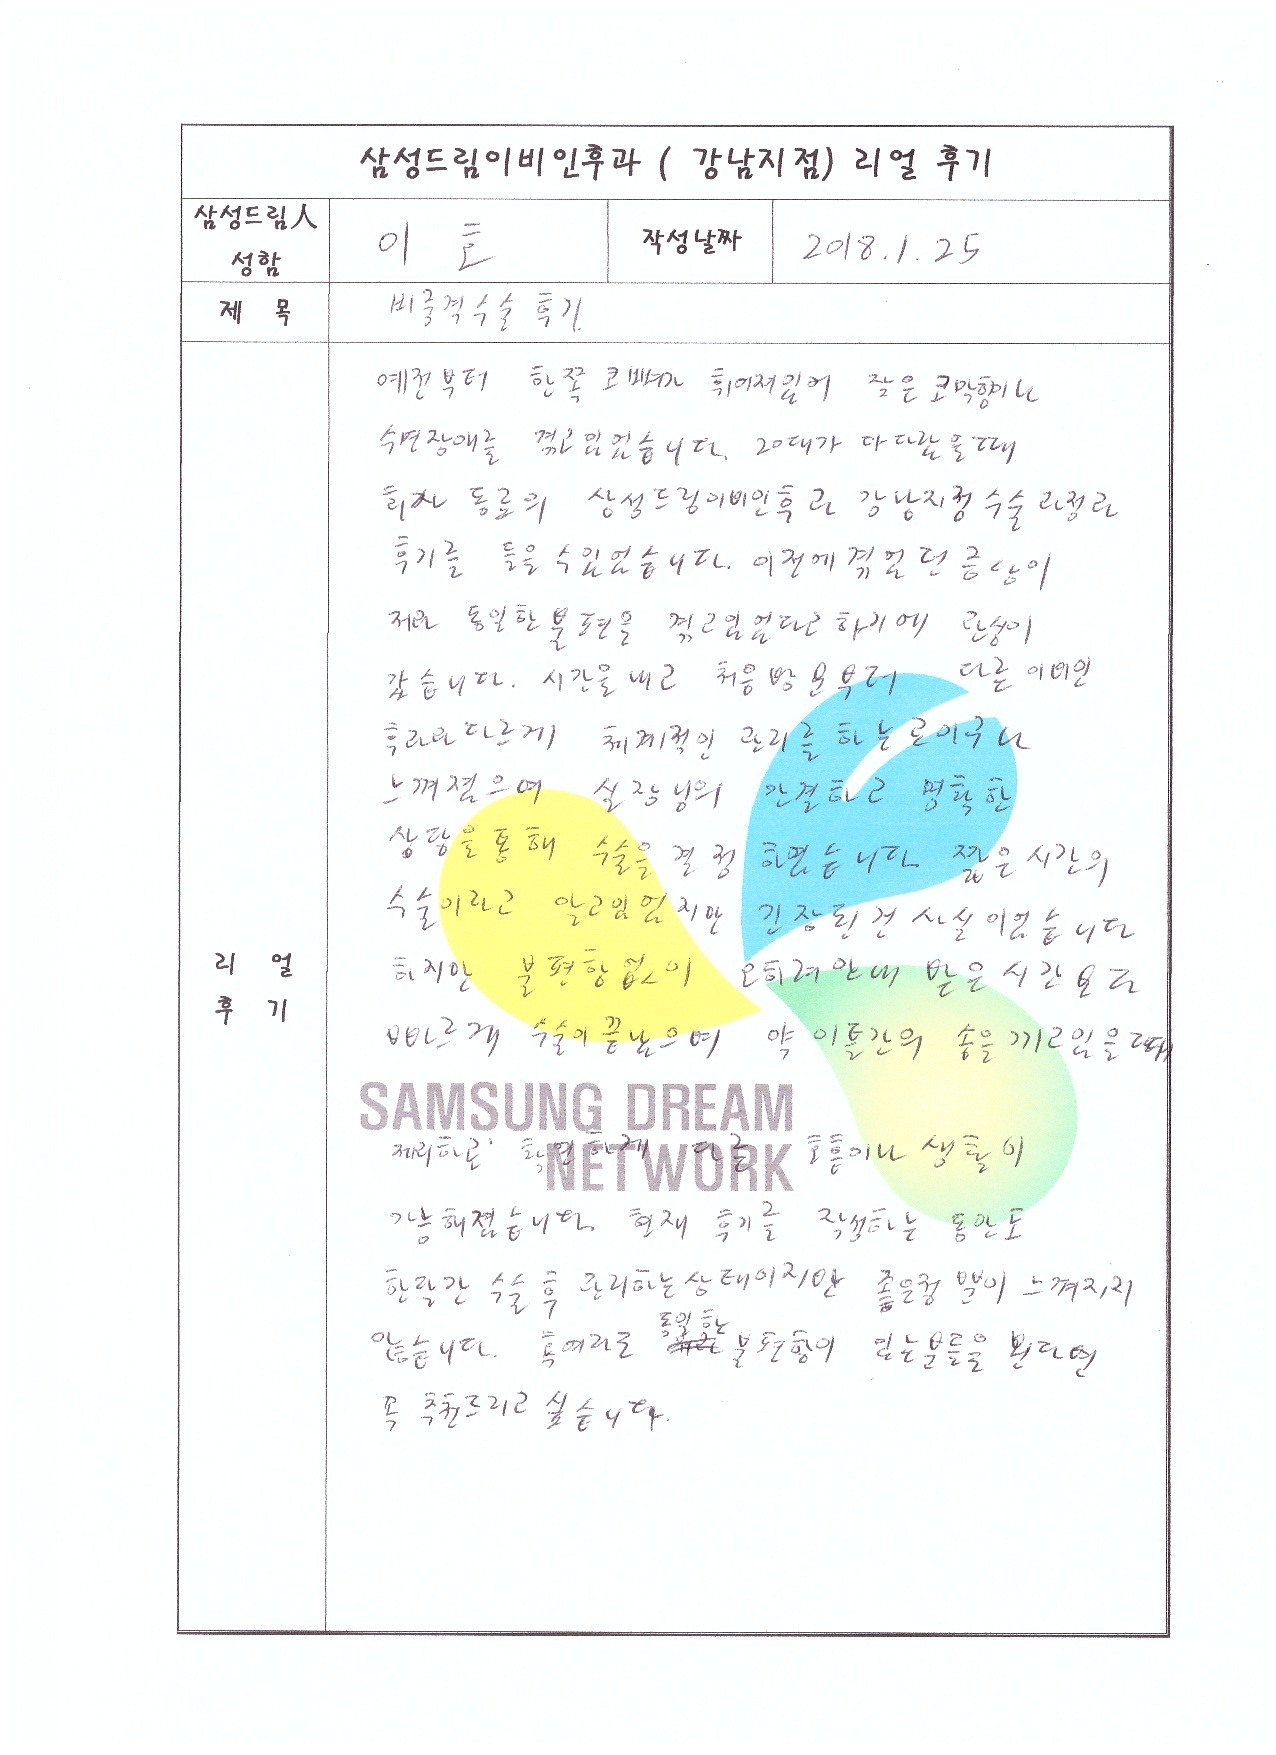 삼성드림이비인후과 ( 강남지점) 리얼 후기
삼성드림人 성함
이 호
작성날짜
2018.1.25
제 목
비중격수술 후기
리 얼 후 기
예전부터 한쪽 코뼈가 휘어져있어 잦은 코막힘이나
수면장애를 겪고있었습니다. 20대가 다다랐을때
회사 동료의 삼성드림이비인후과 강남지점 수술과정과
후기를 들을 수있었습니다. 이전에 겪었던 증상이
저와 동일한 불편을 겪고있었다고 하기에 관심이
갔습니다. 시간을 내고 처음 방문부터 다른 이비인
후과와 다르게 체계적인 관리를 하는곳이구나
느껴졌으며 실장님의 간결하고 명확한
상담을 통해 수술을 결정 하였습니다 짧은 시간의
수술이라고 알고있었지만 긴장된건 사실이었습니다
하지만 불편함없이 오히려 안내 받은 시간보다
빠르게 수술이 끝났으며 약 이틀간의 솜을 끼고있을때
SAMSUNG DREAM
NETWORK
제외하곤 확연하게 다른 호흡이나 생활이
가능해졌습니다. 현재 후기를 작성하는 동안도
한달간 수술 후 관리하는상태이지만 좋은점 밖에 느껴지지
않습니다. 혹여라도 동일한 불편함이 있는분들을 본다면
꼭 추천드리고 싶습니다.